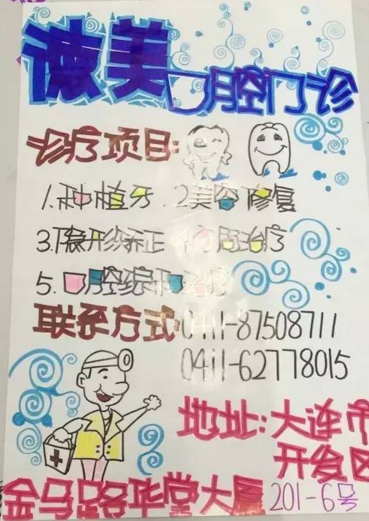 德美口腔门诊
诊疗项目:
1.种植牙.2美容修复
3.隐形矫正 牙周治疗
5.口腔综合治疗
联系方式:0411-87508711
0411-62778015
地址:大连市
开发区
金马路华堂大厦201-6号